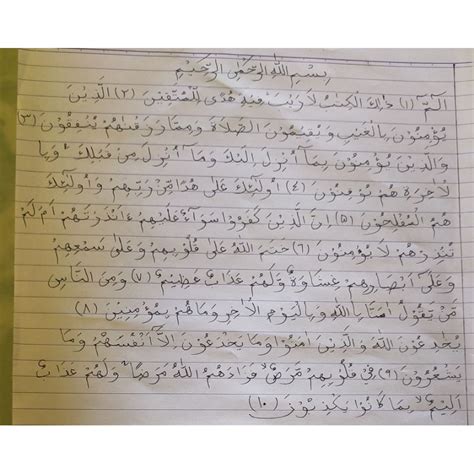 بِسْمِ اللهِ الرَّحْمٰنِ الرَّحِيْمِ
الٓمّٓ (١) ذٰلِكَ الْكِتٰبُ لَا رَيْبَ فِيْهِ هُدًى لِّلْمُتَّقِيْنَ (٢) الَّذِيْنَ
يُؤْمِنُوْنَ بِالْغَيْبِ وَيُقِيْمُوْنَ الصَّلَاةَ وَمِمَّا رَزَقْنٰهُمْ يُنْفِقُوْنَ (٣)
وَالَّذِيْنَ يُؤْمِنُوْنَ بِمَا أُنْزِلَ اِلَيْكَ وَمَا أُنْزِلَ مِنْ قَبْلِكَ وَبِا
لْاٰخِرَةِ هُمْ يُوْقِنُوْنَ (٤) أُولٰئِكَ عَلٰى هُدًا مِّنْ رَّبِّهِمْ وَأُولٰئِكَ
هُمُ الْمُفْلِحُوْنَ (٥) اِنَّ الَّذِيْنَ كَفَرُوْا سَوَآءٌ عَلَيْهِمْ ءَاَنْذَرْتَهُمْ اَمْ لَمْ
تُنْذِرْهُمْ لَا يُؤْمِنُوْنَ (٦) خَتَمَ اللهُ عَلٰى قُلُوْبِهِمْ وَعَلٰى سَمْعِهِمْ
وَعَلٰى أَبْصَارِهِمْ غِشَاوَةٌ وَّلَهُمْ عَذَابٌ عَظِيْمٌ (٧) وَمِنَ النَّاسِ
مَنْ يَّقُوْلُ اٰمَنَّا بِاللهِ وَبِالْيَوْمِ الْاٰخِرِ وَمَا هُمْ بِمُؤْمِنِيْنَ (٨)
يُخٰدِعُوْنَ اللهَ وَالَّذِيْنَ اٰمَنُوْا وَمَا يَخْدَعُوْنَ اِلَّا أَنْفُسَهُمْ وَمَا
يَشْعُرُوْنَ (٩) فِيْ قُلُوْبِهِمْ مَّرَضٌ فَزَادَهُمُ اللهُ مَرَضًا وَلَهُمْ عَذَابٌ
اَلِيْمٌ بِمَا كَانُوْا يَكْذِبُوْنَ (١٠)